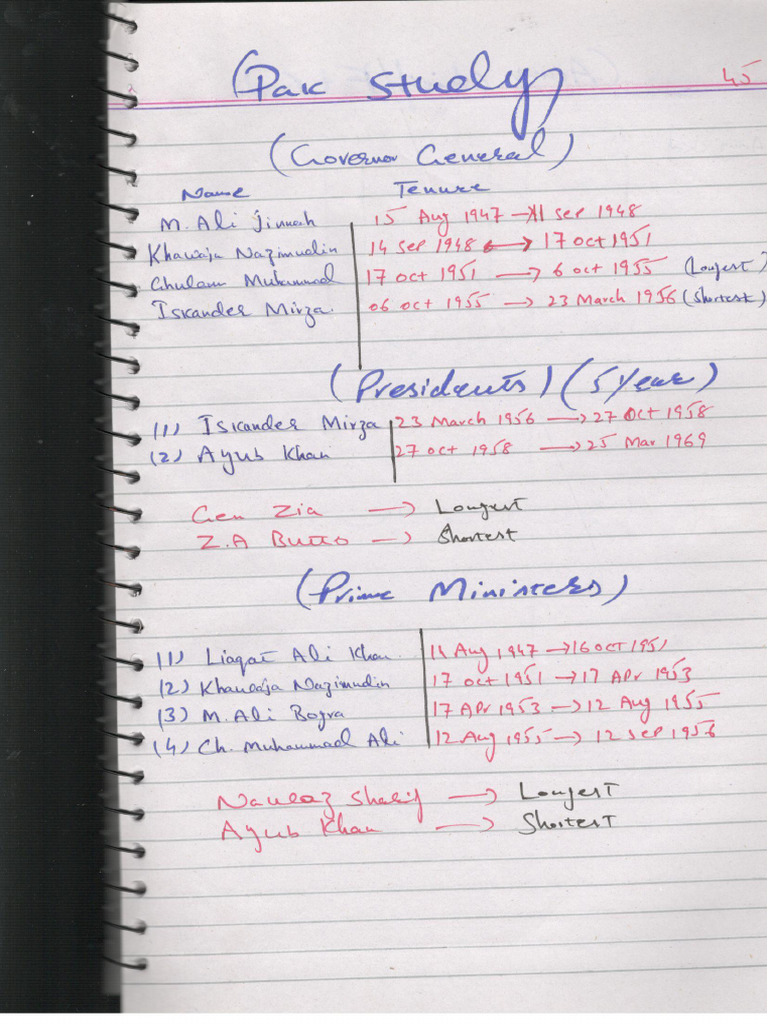 (Pak Study) 45
(Governor General)
Name Tenure
M. Ali Jinnah 15 Aug 1947 → 11 Sep 1948
Khawaja Nazimudin 14 Sep 1948 ↔ 17 Oct 1951
Ghulam Muhammad 17 Oct 1951 → 6 Oct 1955 (Longest)
Iskander Mirza. 06 Oct 1955 → 23 March 1956 (Shortest)
(Presidents) (5 Year)
(1) Iskander Mirza 23 March 1956 → 27 Oct 1958
(2) Ayub Khan 27 Oct 1958 → 25 Mar 1969
Gen Zia → Longest
Z.A Butto → Shortest
(Prime Mininters)
(1) Liaqat Ali Khan 14 Aug 1947 → 16 Oct 1951
(2) Khawaja Nazimudin 17 Oct 1951 → 17 Apr 1953
(3) M. Ali Bogra 17 Apr 1953 → 12 Aug 1955
(4) Ch. Muhammad Ali 12 Aug 1955 → 12 Sep 1956
Nawaz Sharif → Longest
Ayub Khan → Shortest